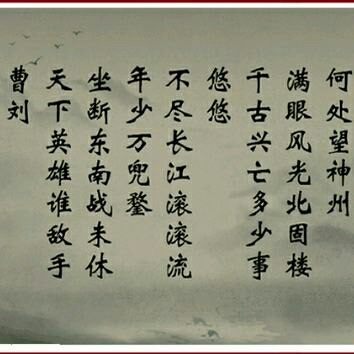 何处望神州
满眼风光北固楼
千古兴亡多少事
悠悠
不尽长江滚滚流
年少万兜鍪
坐断东南战未休
天下英雄谁敌手
曹刘